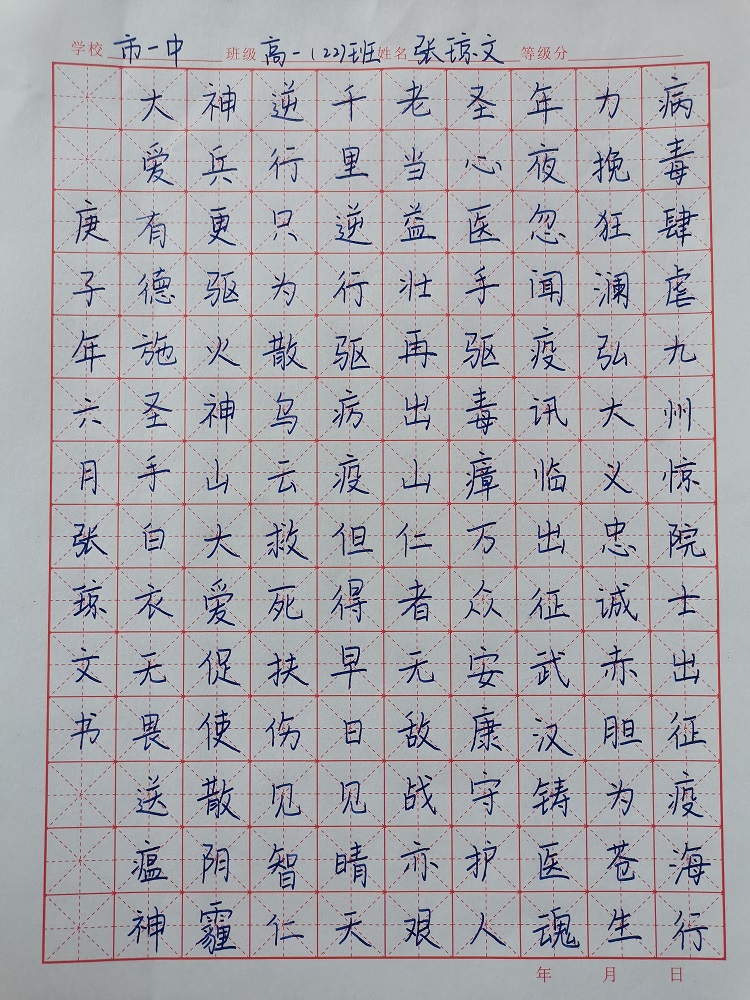 学校 市一中 班级 高一(22)班 姓名 张琼文 等级分
病毒肆虐九州惊院士出征疫海行
力挽狂澜弘大义忠诚赤胆为苍生
年夜忽闻疫讯临出征武汉铸医魂
圣心医手驱毒瘴万众安康守护人
老当益壮再出山仁者无敌战亦艰
千里逆行驱疠疫但得早日见晴天
逆行只为散乌云救死扶伤见智仁
神兵更驱火神山大爱促使散阴霾
大爱有德施圣手白衣无畏送瘟神
庚子年六月张琼文书
年 月 日